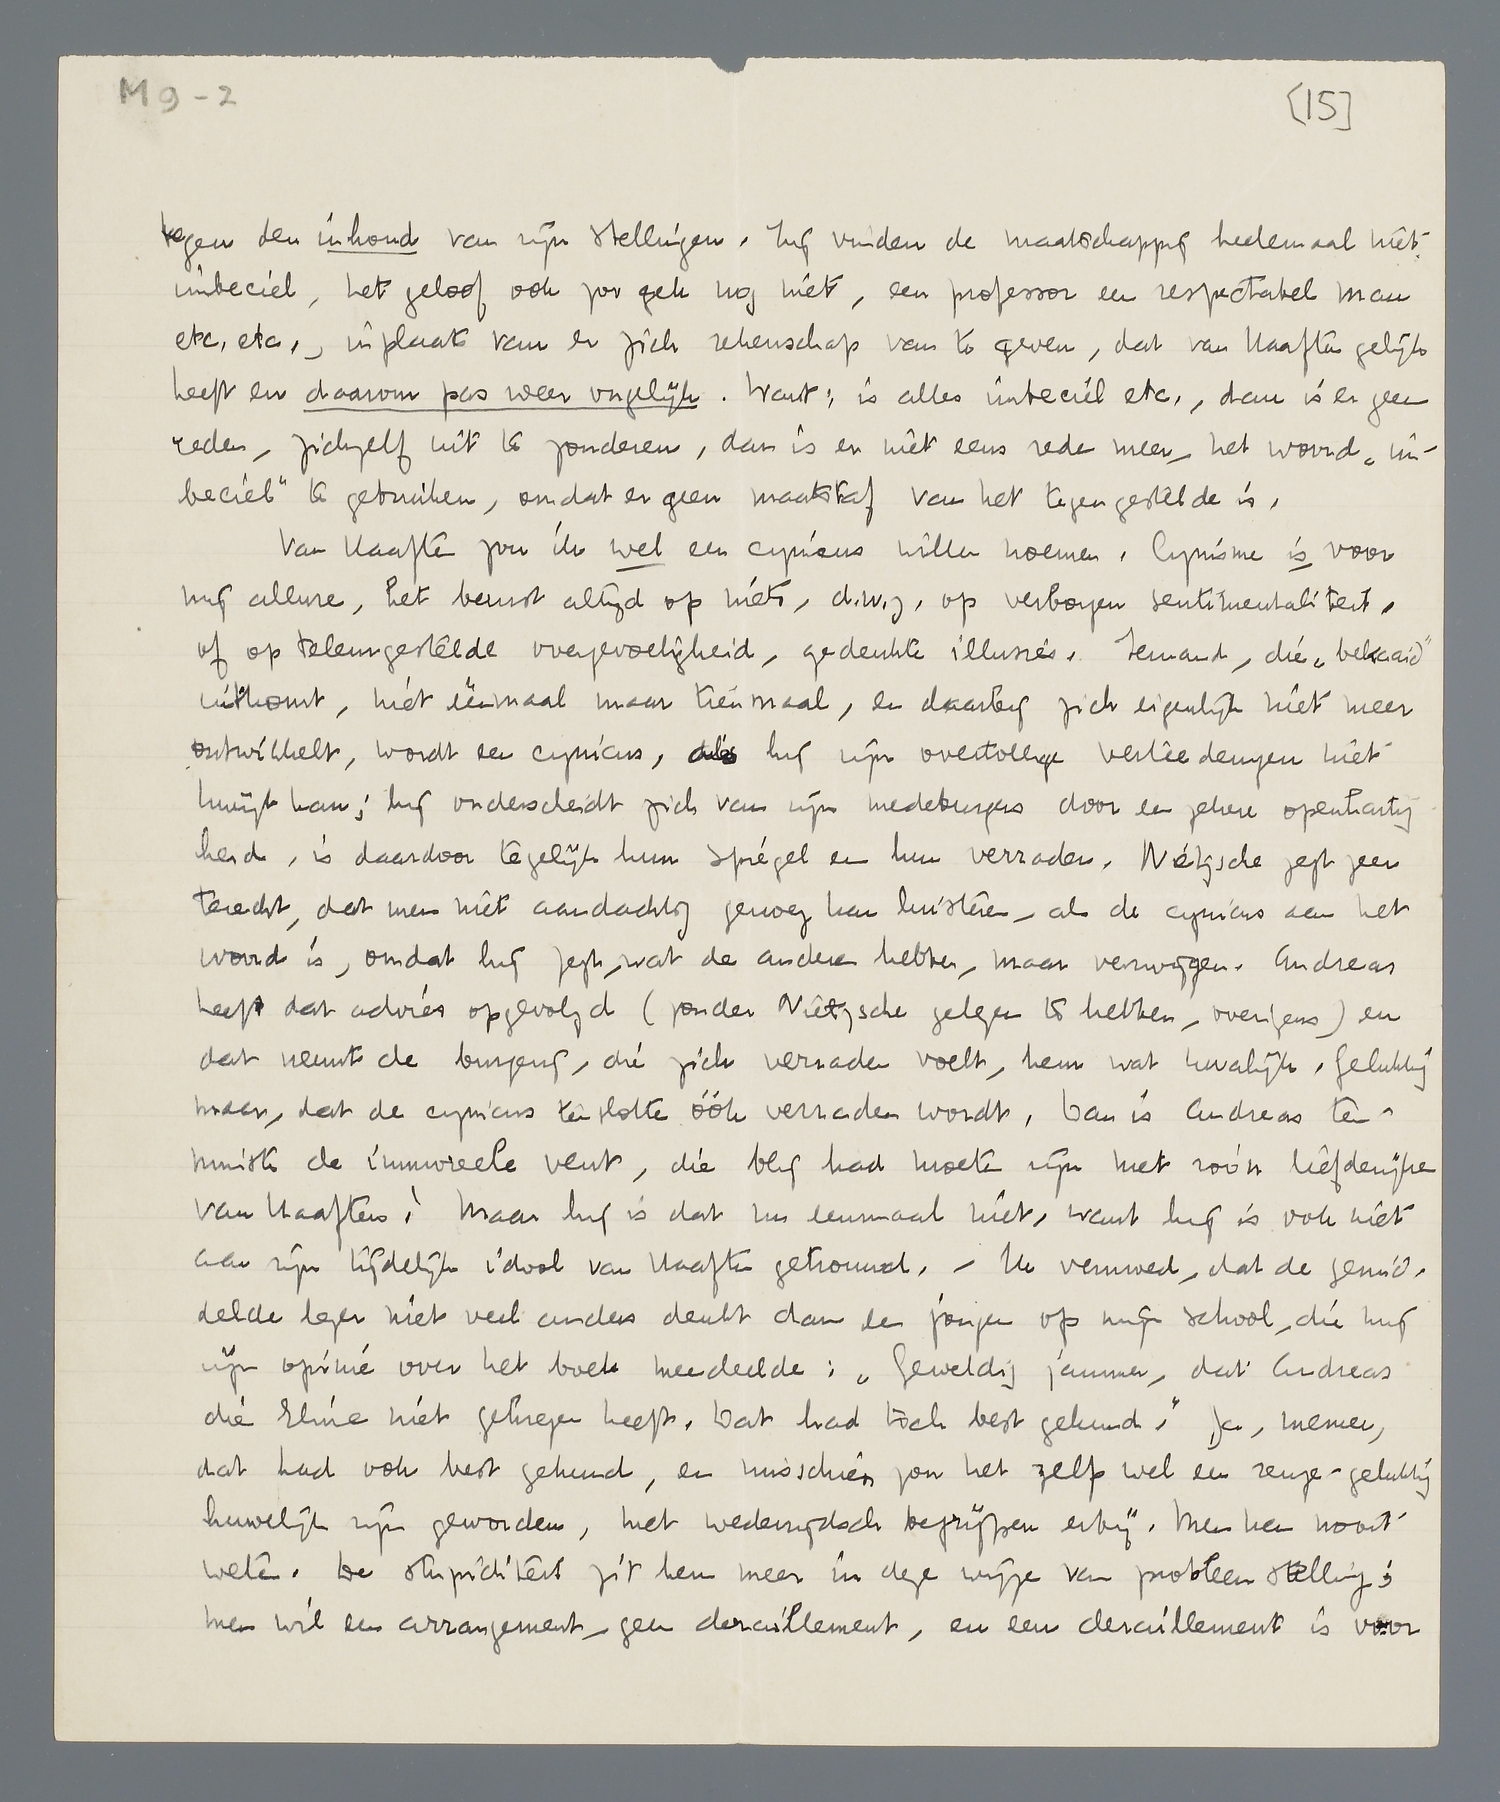 M9-2
[15]
tegen den inhoud van zijn stellingen. Zij vinden de maatschappij heelemaal niet
imbeciel, het geloof ook zoo gek nog niet, een professor een respectabel man
etc. etc., inplaats van er zich rekenschap van te geven, dat van Haaften gelijk
heeft en daarom pas weer ongelijk. Want: is alles imbeciel etc., dan is er geen
reden, zichzelf uit te zonderen, dan is er niet eens rede meer, het woord „im-
beciel" te gebruiken, omdat er geen maatstaf van het tegengestelde is.
Van Haaften zou ik wel een cynicus willen noemen. Cynisme is voor
mij allure, het berust altijd op niets, d.w.z. op verborgen sentimentaliteit,
of op teleurgestelde overgevoeligheid, gedeukte illusies. Iemand, die „bekaaid"
uitkomt, niet éénmaal maar tienmaal, en daarbij zich eigenlijk niet meer
ontwikkelt, wordt een cynicus, als hij zijn overtollige verleedengen niet
kwijt kan; hij onderscheidt zich van zijn medeburgers door een zekere openhartig
heid, is daardoor tegelijk hun spiegel en hun verrader. Nietzsche zegt zeer
terecht, dat men niet aandachtig genoeg kan luisteren, als de cynicus aan het
woord is, omdat hij zegt, wat de anderen hebben, maar verzwijgen. Andreas
heeft dat advies opgevolgd (zonder Nietzsche gelezen te hebben, overigens) en
dat neemt de burgerij, die zich verraden voelt, hem wat kwalijk. Gelukkig
maar, dat de cynicus tenslotte óók verraden wordt. Dan is Andreas ten-
minste de immoreele vent, die blij had moeten zijn met zoo'n liefderijke
van Haaften! Maar hij is dat nu eenmaal niet, want hij is ook niet
aan zijn tijdelijk idool van Haaften getrouwd. – Ik vermoed, dat de gemid-
delde lezer niet veel anders denkt dan een jongen op mijn school, die mij
zijn opinie over het boek meedeelde: „Geweldig jammer, dat Andreas
die Eline niet gekregen heeft. Dat had toch best gekund." Ja, meneer,
dat had ook best gekund, en misschien zou het zelfs wel een reuze-gelukkig
huwelijk zijn geworden, met wederzijdsch begrijpen erbij. Men kan nooit
weten. De stupiditeit zit hem meer in deze wijze van probleemstelling;
men wil een arrangement, geen deraillement, en een deraillement is voor